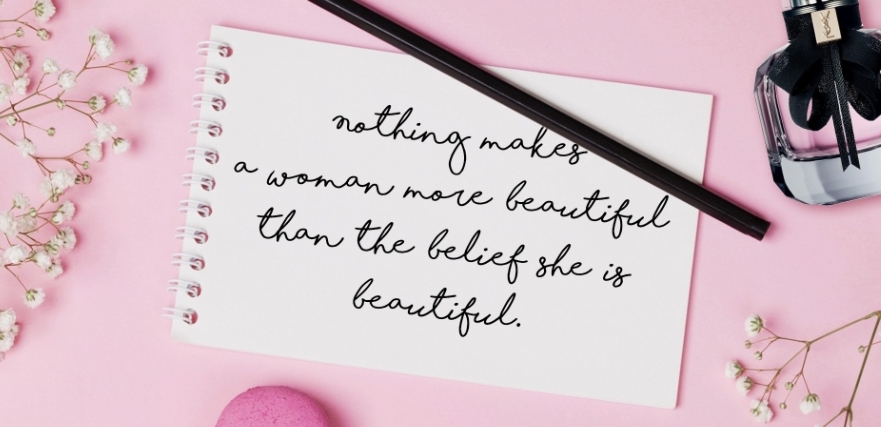 nothing makes
a woman more beautiful
than the belief she is
beautiful.
YSL